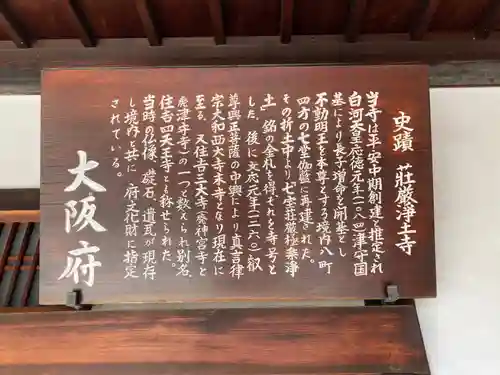 史蹟 荘厳浄土寺
当寺は平安中期創建と推定され
白河天皇応徳元年(一〇八四)津守国
基により長子増命を開基とし
不動明王を本尊とする境内八町
四方の七堂伽藍に再建された。
その折土中より「七宝荘厳極楽浄
土」銘の金札を得ぞれを寺号と
した。後に文応元年(一二六〇)叡
尊興正菩薩の中興により真言律
宗大和西大寺末寺となり現在に
至る。又住吉三大寺(神宮寺と
津守寺)の一つと数えられ別名、
住吉四天王寺とも称せられた。
当時の仏像、礎石、遺瓦が現存
し境内と共に 府文化財に指定
されている。
大阪府